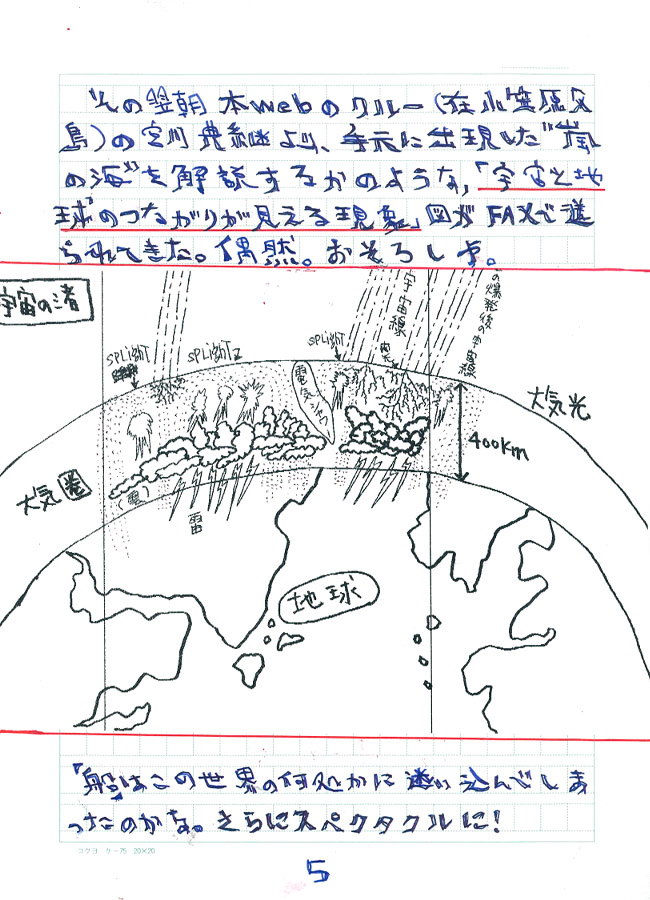 その翌朝 本webのクルー(在小笠原父
島)の宮川典継より、手元に出現した"嵐
の海"を解説するかのような,「宇宙と地
球のつながりが見える現象」図がFAXで送
られてきた。偶然。おそろしす。
宇宙の渚
の爆発後の宇宙線
宇宙線
SPLIGHT
SPLIGHTZ
SPLIGHT
電気
大気光
400km
大気圏
(雲)
雷
地球
『船』はこの世界の何処かに迷い込んでしま
ったのかな。さらにスペクタクルに!
コクヨ ケ-75 20×20
5